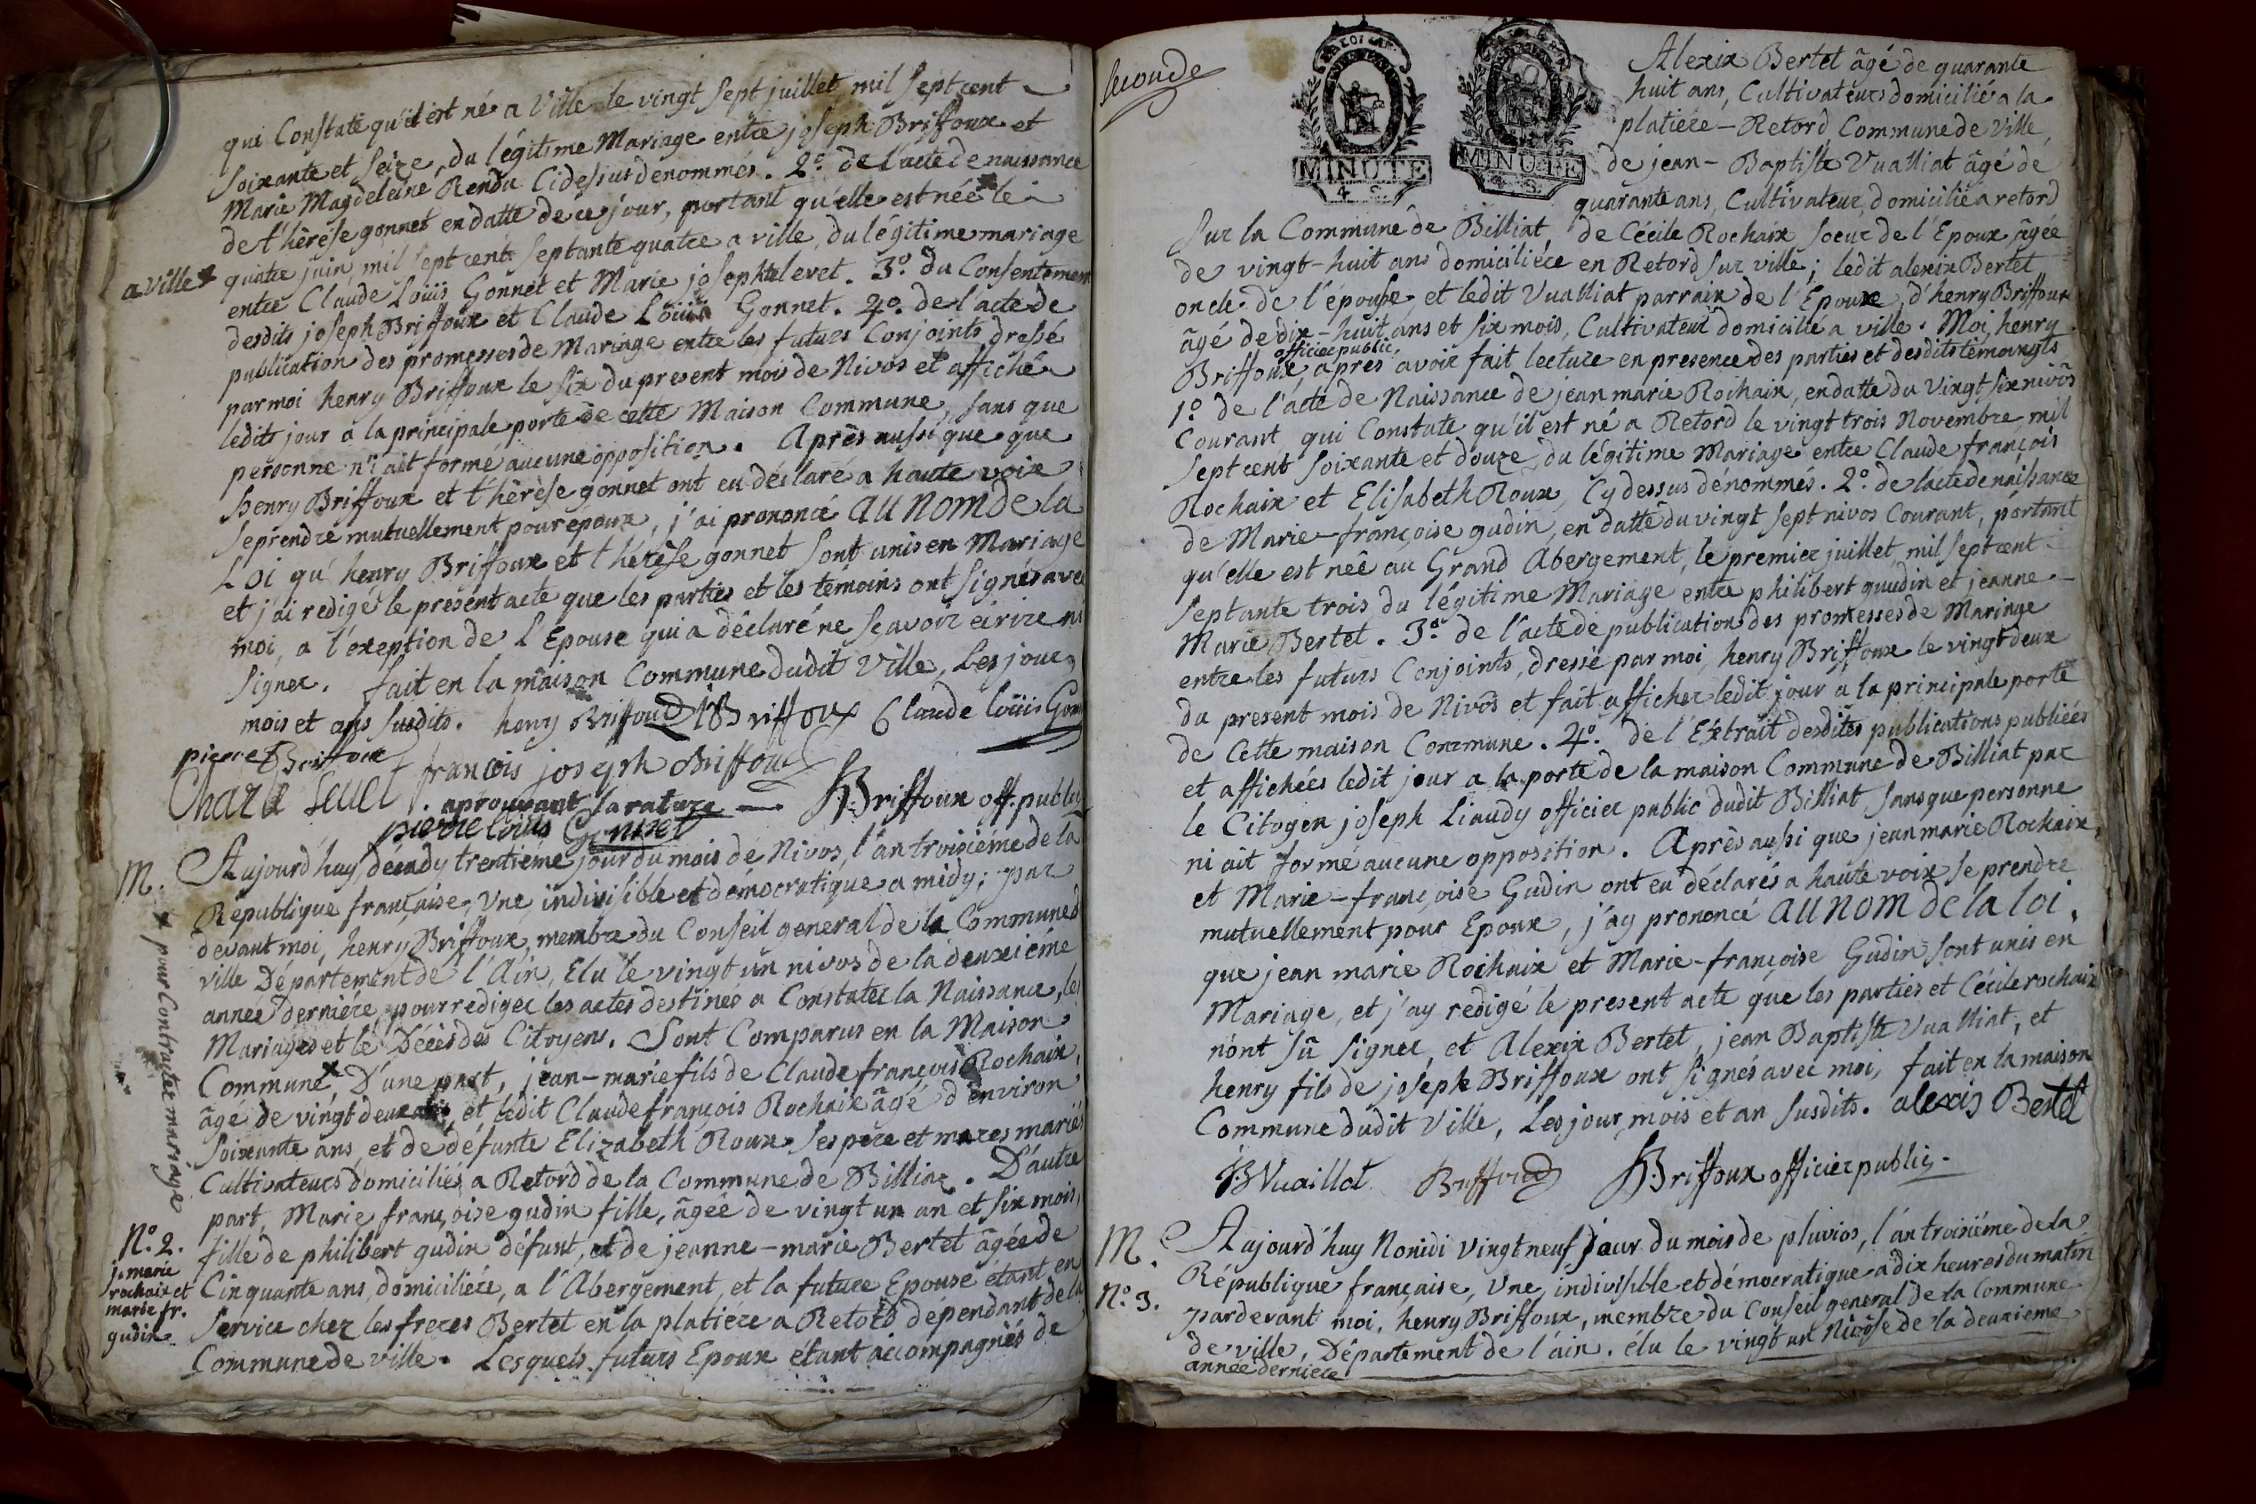 qui Constate qu'il est né a Ville le vingt sept juillet mil sept cent
soixante et seize, du légitime Mariage entre joseph Briffoux et
Marie Magdeleine Rendu Cidessus denommés. 2º de l'acte de naissance
de thérèse gonnet en datte de ce jour, portant qu'elle est née le
a ville
quatre juin mil sept cent septante quatre a ville, du légitime mariage
entre Claude Loüis Gonnet et Marie josephte levet. 3º du Consentement
desdits joseph Briffoux et Claude Loüis Gonnet. 4º de l'acte de
publication des promesses de Mariage entre les futurs Conjoints dressé
par moi henry Briffoux le six du present mois de Nivos et affiché
ledit jour a la principale porte de cette Maison Commune, sans que
personne ni ait formé aucune opposition. Après aussi que que
henry Briffoux et thérèse gonnet ont eu déclaré a haute voix
se prendre mutuellement pour epoux, j'ai prononcé AU NOM de la
LOi qu'henry Briffoux et thérèse gonnet sont unis en Mariage
et j'ai redigé le present acte que les parties et les témoins ont signés avec
moi, a l'exeption de L'Epouse qui a déclaré ne sçavoir écrire ni
signer. fait en la maison Commune dudit Ville, Les jour,
mois et ans susdits. henry Briffoud Briffoux Claude loüis Gon
pierre Briffoux
francois joseph Briffoud
Charle Levet. aprouvant la rature HBriffoux off. public
pierre loüis Gonnet
M. Aujourd'huy, décady trentième jour du mois de Nivos, l'an troisiéme de la
République française, Une, indivisible et démocratique a midy; par
devant moi, henry Briffoux, membre du Conseil general de la Commune de
ville Département de l'Ain, Elu le vingt un nivos de la deuxiéme
année derniére, pour rediger les actes destinés a Constater la Naissance, les
Mariages et le Décès des Citoyens. Sont Comparus en la Maison
Commune D'une part, jean-marie fils de Claude françois Rochaix,
x pour Contracter mariage
âgé de vingt deux ans, et ledit Claude françois Rochaix âgé d'environ
soixante ans, et de défunte Elizabeth Roux ses pere et meres mariés
Cultivateurs domiciliés a Retord de la Commune de Billiat. D'autre
part, Marie françoise gudin fille, âgée de vingt un an et six mois,
Nº. 2.
j. marie
rochaix et
marie fr.
gudin
fille de philibert gudin défunt, et de jeanne-marie Bertet âgée de
Cinquante ans, domiciliére, a l'Abergement, et la future Epouse étant en
service chez les freres Bertet en la platiére a Retord dépendant de la
Commune de ville. Lesquels futurs Epoux étant accompagnés de
seconde
MINUTE
MINUTE
Alexix Bertet âgé de quarante
huit ans, Cultivateurs domicilié a la
platiére-Retord Commune de Ville,
de jean-Baptiste Vualliat âgé de
quarante ans, Cultivateur, domicilié a retord
Sur la Commune de Billiat, de Cécile Rochaix soeur de l'Epoux âgée
de vingt-huit ans domiciliéee en Retord sur ville; ledit alexix Bertet
oncle de l'épouse, et ledit Vualliat parrain de l'Epoux, d'henry Briffoux
âgé de dix-huit ans et six mois, Cultivateur domicilié a ville. Moi, henry
officier public,
Briffoux, après avoir fait lecture en presence des parties et desdits témoingts
1º de l'acte de Naissance de jean marie Rochaix, en datte du Vingt six nivôs
Courant, qui Constate qu'il est né a Retord le vingt trois Novembre mil
sept cent soixante et douze du légitime Mariage entre Claude françois
Rochaix et Elisabeth Roux, Cy dessus dénommés. 2º de l'acte de naissance
de Marie-françoise gudin, en datte du vingt sept nivos Courant, portant
qu'elle est née au Grand Abergement, le premier juillet, mil sept cent
septante trois du légitime Mariage entre philibert guudin et jeanne
Marie Bertet. 3º de l'acte de publication des promesses de Mariage
entre les futurs Conjoints, dressé par moi, henry Briffoux le vingt deux
du present mois de Nivôs et fait afficher ledit jour a la principale porte
de Cette maison Commune. 4º. de l'Extrait desdites publications publiées
et affichées ledit jour a la porte de la maison Commune de Billiat par
le Citoyen joseph Liaudy officier public dudit Billiat sans que personne
ni ait formé aucune opposition. Après aussi que jean marie Rochaix,
et Marie-françoise Gudin ont eu déclarés a haute voix se prendre
mutuellement pour Epoux, j'ay prononcé AU NOM de la loi.
que jean marie Rochaix et Marie-françoise Gudin sont unis en
Mariage, et j'ay redigé le present acte que les parties et Cécile rochaix
n'ont sû signer, et Alexix Bertet, jean Baptiste Vualliat, et
henry fils de joseph Briffoux ont signés avec moi, fait en la maison
Commune dudit Ville, Les jour, mois et an susdits. alexis Bertet
JBVuaillat Briffoud HBriffoux officier public.
M. Aujourd'huy Nonidi vingt neuf jour du mois de pluvios, l'an troisiéme de la
République française, Une, indivisible et démocratique a dix heures du matin
Nº. 3.
pardevant moi, henry Briffoux, membre du Conseil general de la Commune
de ville, Département de l'ain. élu le vingt un Nivôse de la deuxieme
année derniere.